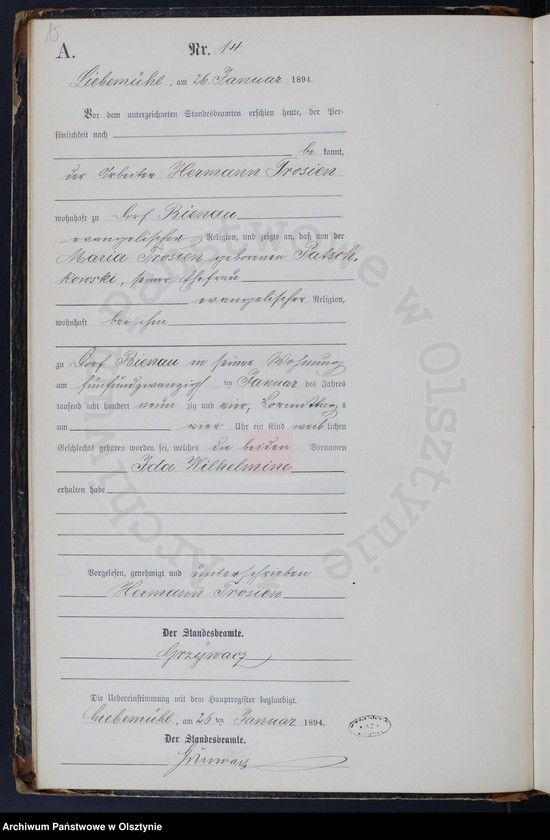 15
A.
Nr. 14
Liebemühl, am 26. Januar 1894.
Vor dem unterzeichneten Standesbeamten erschien heute, der Per-
sönlichkeit nach
be kannt,
der Arbeiter Hermann Trosien
wohnhaft zu Dorf Bienau
evangelischer Religion, und zeigte an, daß von der
Maria Trosien geborenen Patsch-
kowski, seiner Ehefrau
evangelischer Religion,
wohnhaft bei ihm
zu Dorf Bienau in seiner Wohnung
am fünfundzwanzigsten Januar des Jahres
tausend acht hundert neunzig und vier, Vormittags
um vier Uhr ein Kind weiblichen
Geschlechts geboren worden sei, welches die beiden Vornamen
Ida Wilhelmine
erhalten habe
Vorgelesen, genehmigt und unterschrieben
Hermann Trosien
Der Standesbeamte.
Grzywacz
Die Uebereinstimmung mit dem Hauptregister beglaubigt.
Liebemühl, am 26ten Januar 1894.
Der Standesbeamte.
Archiwum Państwowe w Olsztynie
Archiwum Państwowe w Olsztynie